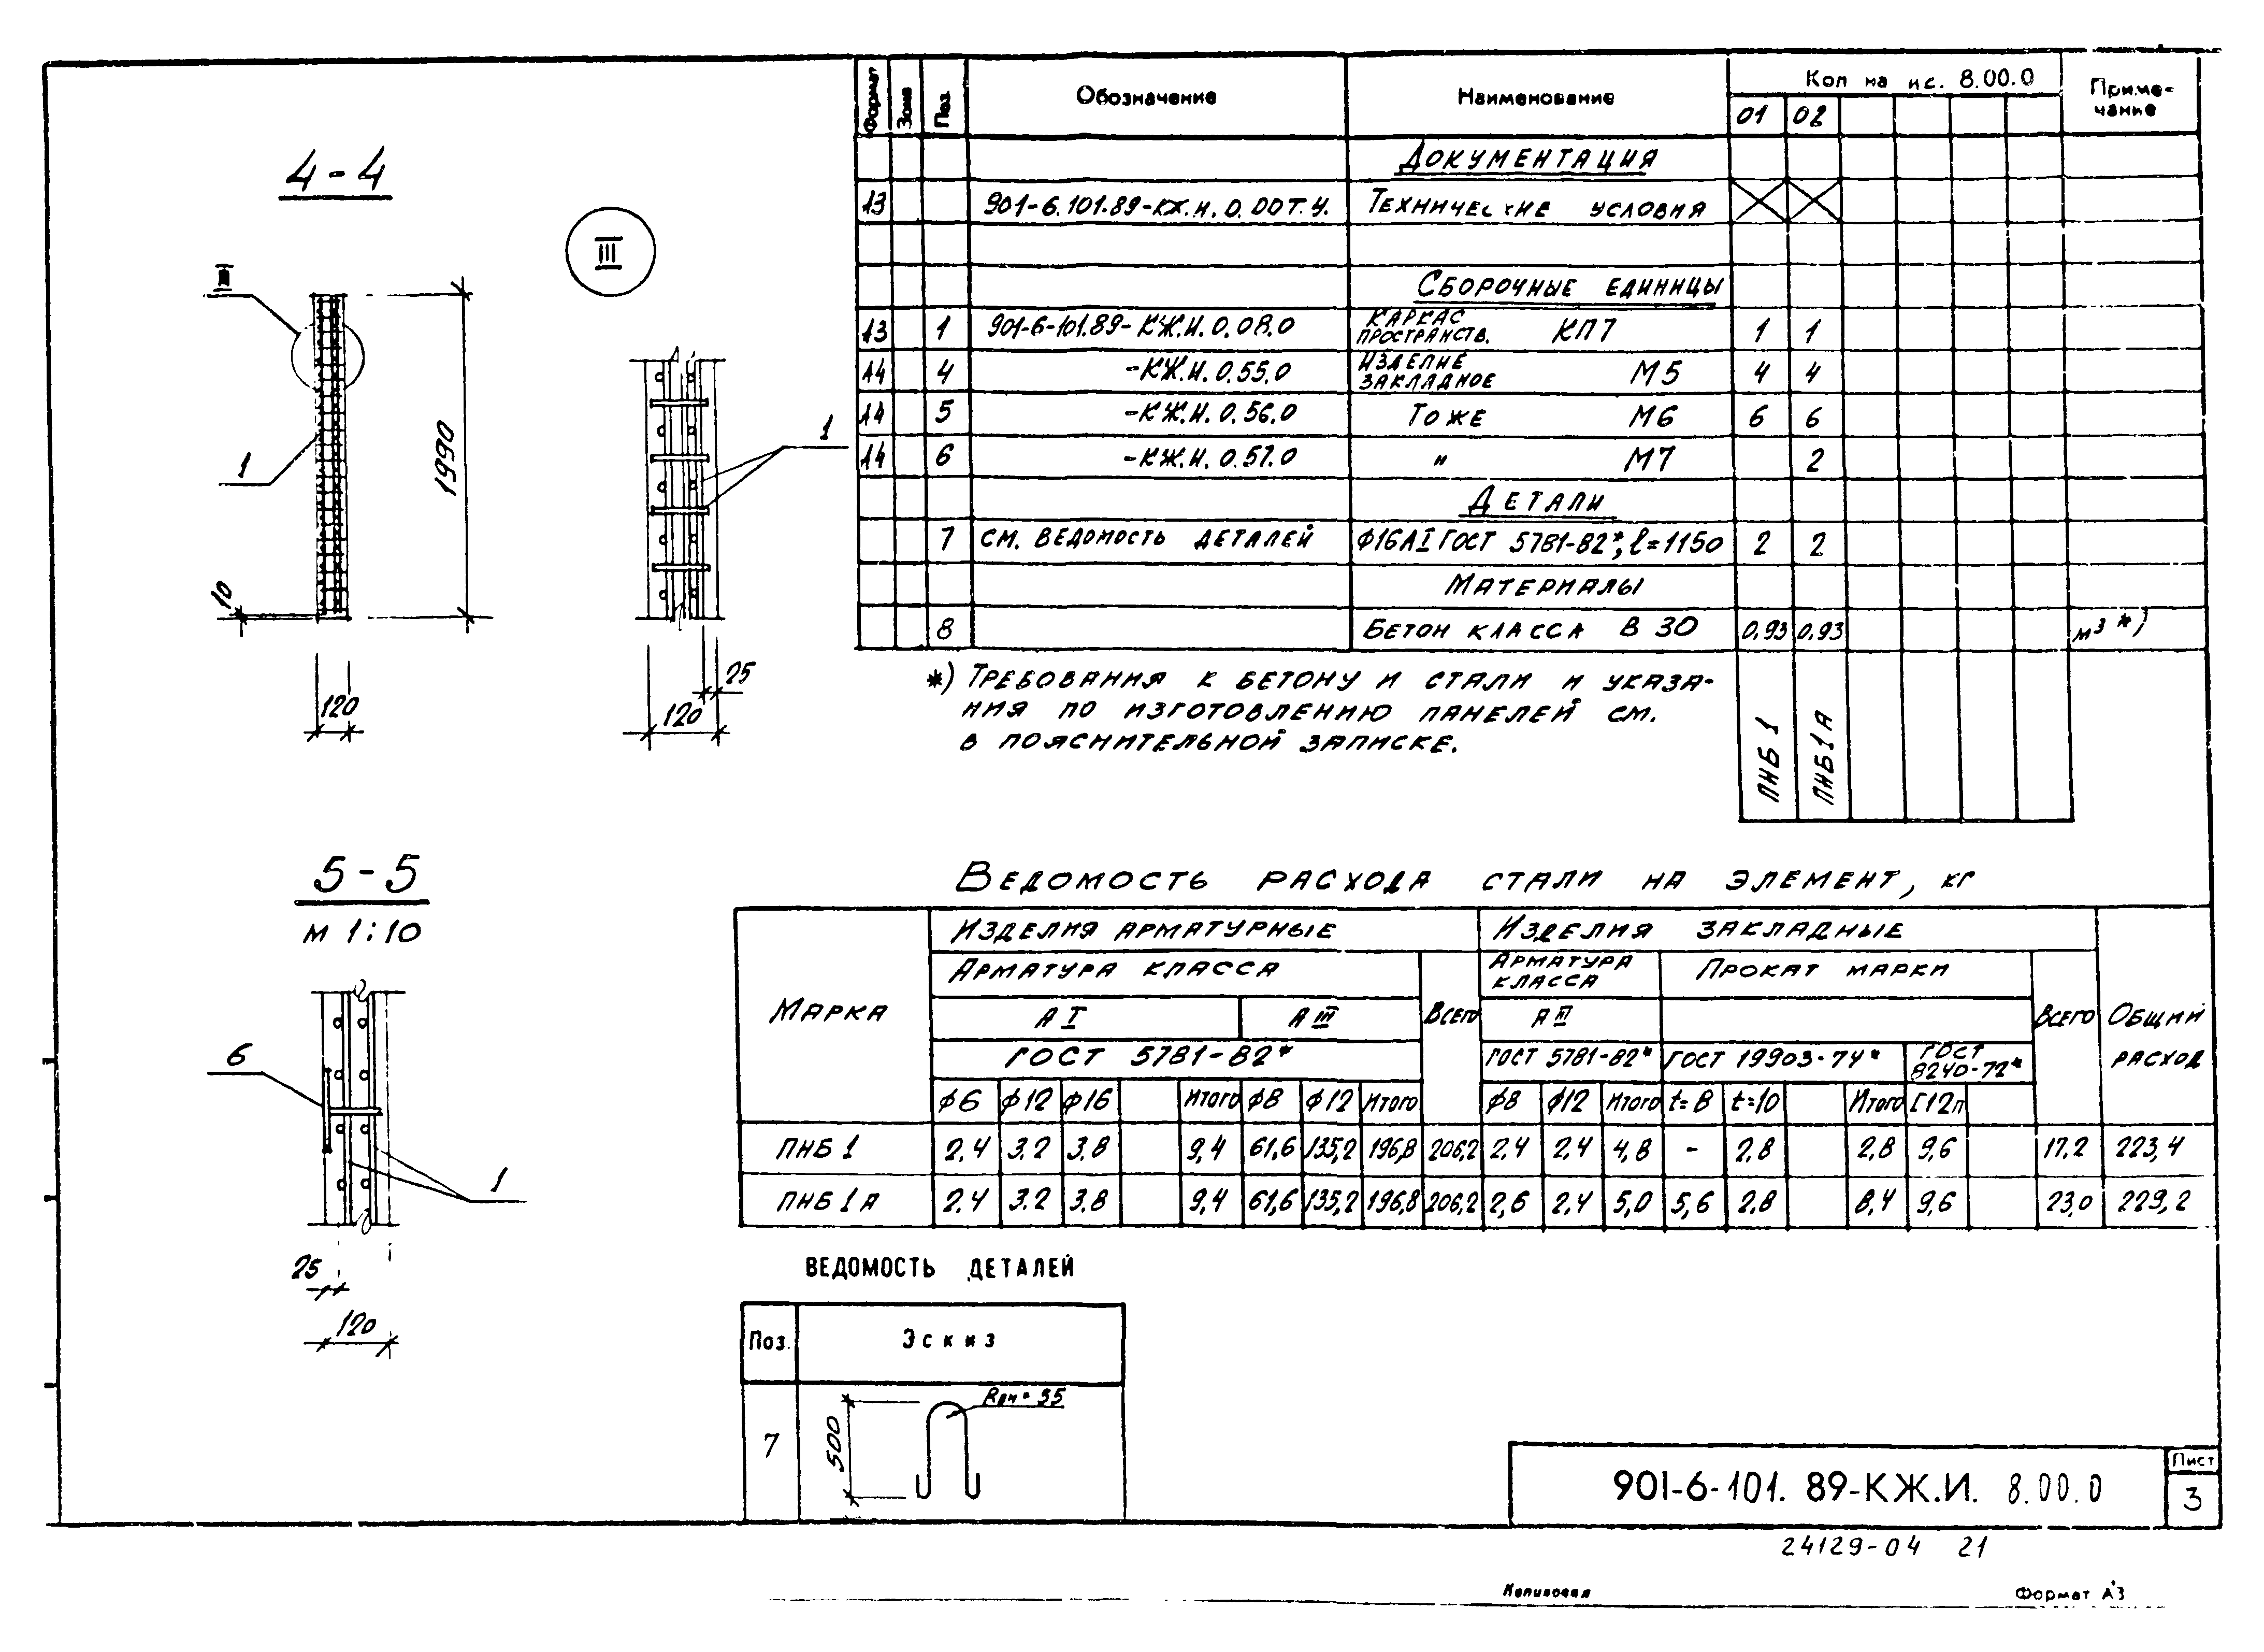 4-4
III
III
1
1990
10
120
1
25
120
5-5
М 1:10
6
1
25
120
Формат Зона Поз. Обозначение Наименование Кол на ис. 8.00.0 Приме-
чание
01 02
Документация
А3 901-6.101.89-КЖ.И.0.00Т.У. Технические условия
Сборочные единицы
А3 1 901-6-101.89-КЖ.И.0.08.0 Каркас пространств. КП7 1 1
А4 4 -КЖ.И.0.55.0 Изделие закладное М5 4 4
А4 5 -КЖ.И.0.56.0 Тоже М6 6 6
А4 6 -КЖ.И.0.57.0 " М7 2
Детали
7 см. ведомость деталей ϕ16АI ГОСТ 5781-82*, ℓ=1150 2 2
Материалы
8 Бетон класса В 30 0,93 0,93 м3 *)
ПНБ 1 ПНБ1А
*) Требования к бетону и стали и указа-
ния по изготовлению панелей см.
в пояснительной записке.
Ведомость расхода стали на элемент, кг
Марка Изделия арматурные Изделия закладные Общий
расход
Арматура класса Всего Арматура
класса Прокат марки Всего
А I А III А III
ГОСТ 5781-82* ГОСТ 5781-82* ГОСТ 19903-74* ГОСТ
8240-72*
ϕ6 ϕ12 ϕ16 Итого ϕ8 ϕ12 Итого ϕ8 ϕ12 Итого t=8 t=10 Итого [12п
ПНБ 1 2.4 3.2 3.8 9,4 61,6 135,2 196,8 206,2 2,4 2,4 4,8 - 2,8 2,8 9,6 17,2 223,4
ПНБ 1А 2.4 3.2 3.8 9,4 61,6 135,2 196,8 206,2 2,6 2,4 5,0 5,6 2,8 8,4 9,6 23,0 229,2
ВЕДОМОСТЬ ДЕТАЛЕЙ
Поз. Эскиз
7 500 Rвн=35
901-6-101. 89-КЖ.И. 8.00.0
Лист
3
24129-04 21
Копировал Формат А3